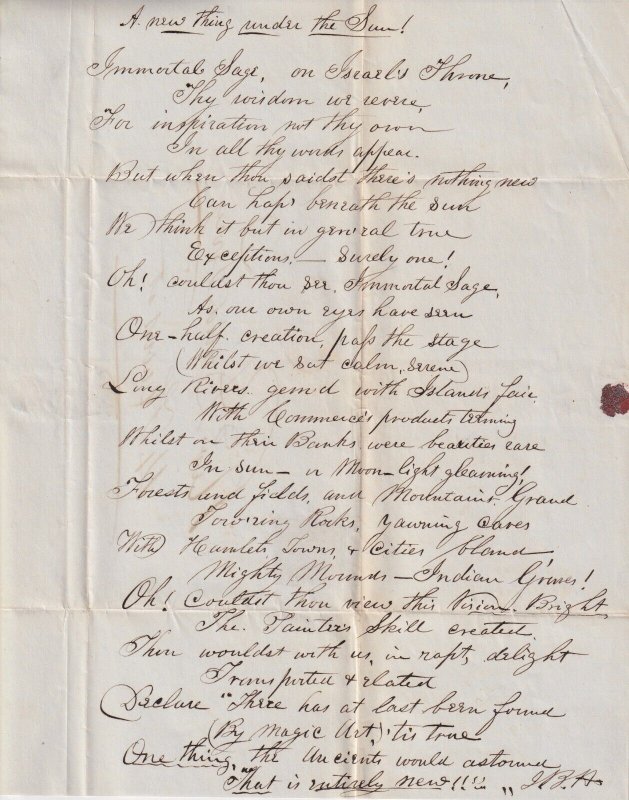 A new thing under the Sun!
Immortal Sage, on Israel's Throne,
Thy wisdom we revere,
For inspiration not thy own
In all thy words appear.
But when thou saidst there's nothing new
Can hap' beneath the Sun
We think it but in general true
Exceptions, — Surely one!
Oh! couldst thou see, Immortal Sage,
As our own eyes have seen
One-half creation, pass the stage
(Whilst we sat calm, serene)
Long Rivers gem'd with Islands fair
With Commerce's products teeming
Whilst on their Banks were beauties rare
In Sun — or Moon-light gleaming!
Forests and fields, and Mountains Grand
Towering Rocks, yawning caves
With Hamlets, Towns, & Cities bland
Mighty Mounds — Indian Graves!
Oh! couldst thou view this Vision Bright
The Painter's Skill created
Thou wouldst with us, in rapt, delight
Transported & elated
Declare "There has at last been found
(By Magic Art,) 'tis true
One thing, the Ancients would astound
"That is entirely new!!!" J.B.H.